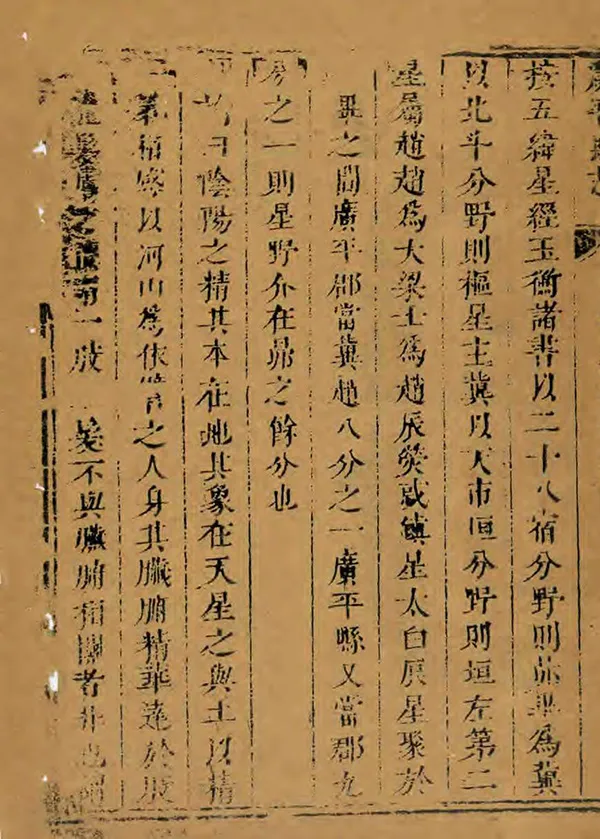 廣平縣志
按五緯星經玉衡諸書以二十八宿分野則昴畢為冀
以北斗分野則樞星主冀以天市垣分野則垣左第二
星屬趙趙為大梁士為趙辰熒惑鎮星太白辰星聚於
畢之間廣平郡當冀趙八分之一廣平縣又當郡九
分之一則星野介在昴之餘分也
曰陰陽之精其本在地其象在天星之與土以精
氣相感以河山為依譬之人身其臟腑精華達於
一肢一髮不與臟腑相關者非也